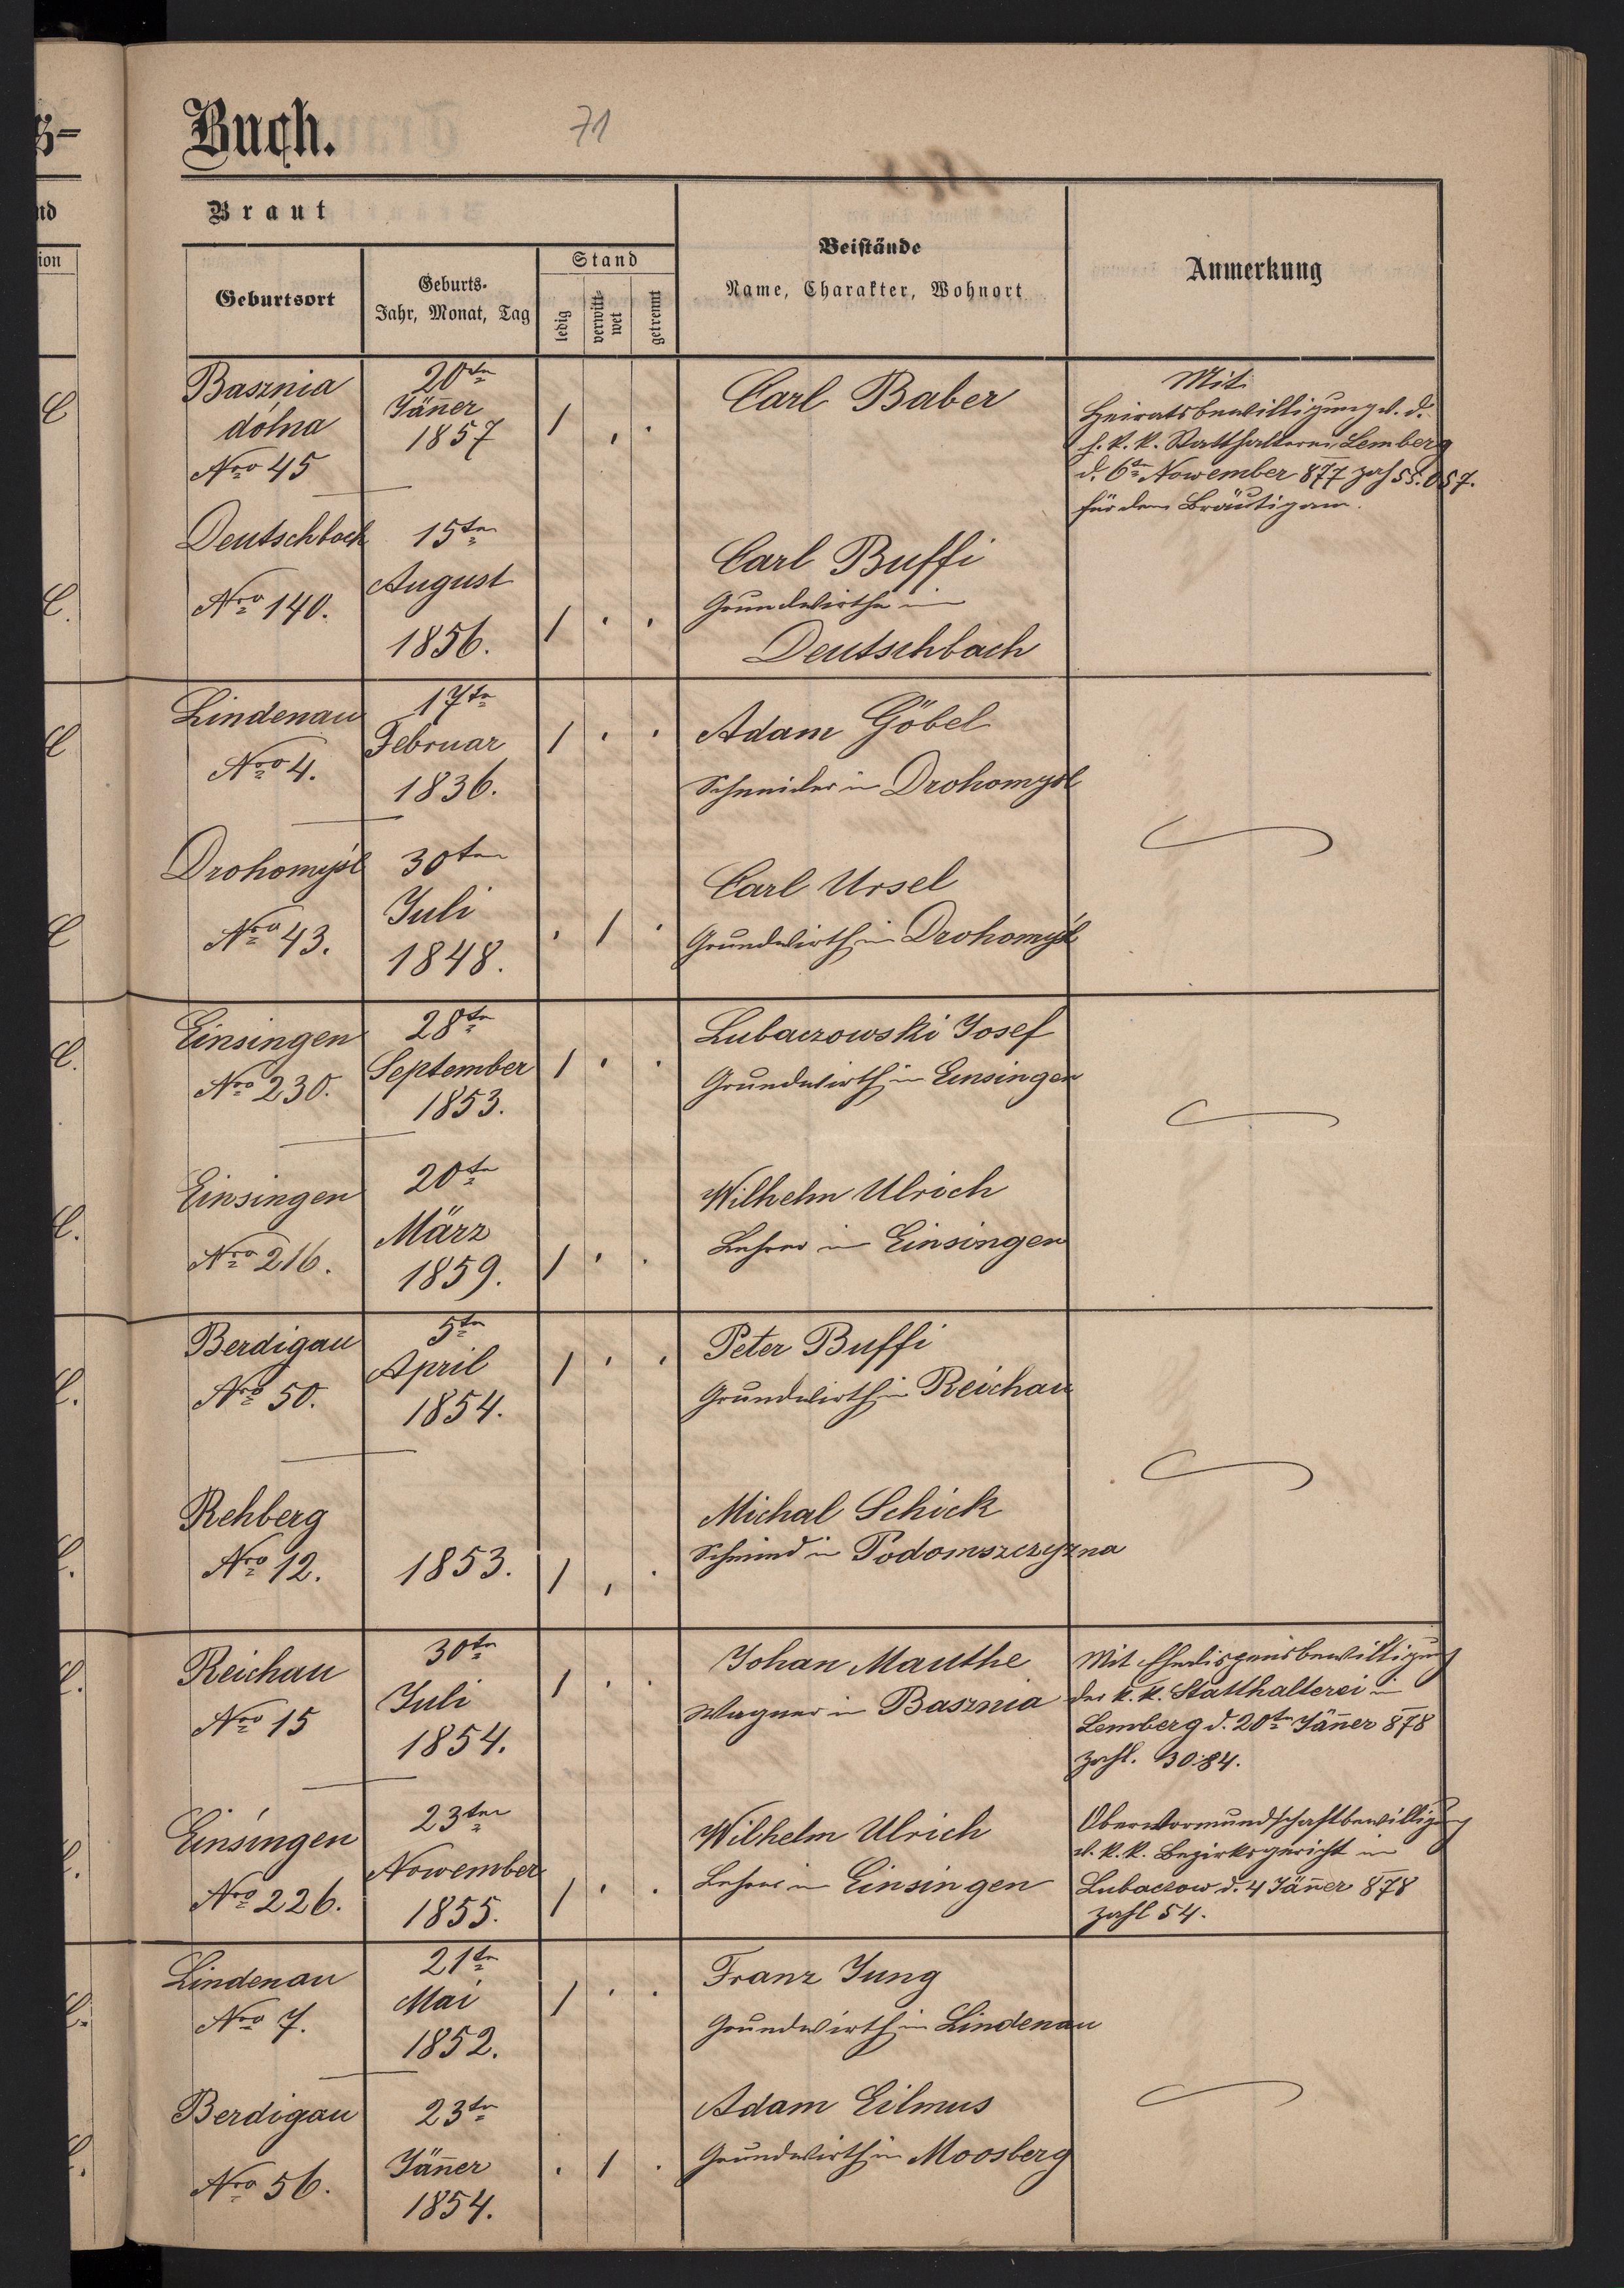 Buch.
71
Braut
Beistände
Name, Charakter, Wohnort
Anmerkung
Geburtsort
Geburts-
Jahr, Monat, Tag
Stand
ledig
verwitt-
wet
getrennt
Basznia
dólna
Nro 45
20ten
Jänner
1857
1
Carl Baber
Mit
Heiratsbewilligung v. d.
h. k. k. Statthalterei Lemberg
d. 6ten Nowember 877 zahl 55.057.
für den Bräutigam.
Deutschbach
Nro 140.
15ten
August
1856.
1
Carl Buffi
Grundwirth in
Deutschbach
Lindenau
Nro 4.
17ten
Februar
1836.
1
Adam Göbel
Schneider in Drohomysl
Drohomyśl
Nro 43.
30ten
Juli
1848.
1
Carl Ursel
Grundwirth in Drohomyśl
Einsingen
Nro 230.
28ten
September
1853.
1
Lubaczowski Josef
Grundwirth in Einsingen
Einsingen
Nro 216.
20ten
März
1859.
1
Wilhelm Ulrich
Lehrer in Einsingen
Berdigau
Nro 50.
5ten
April
1854.
1
Peter Buffi
Grundwirth in Reichau
Rehberg
Nro 12.
1853.
1
Michal Schick
Schmied in Podomszczyzna
Reichau
Nro 15
30ten
Juli
1854.
1
Johan Mauthe
Wagner in Basznia
Mit Ehedispensbewilligung
der k. k. Statthalterei in
Lemberg d. 20ten Jänner 878
zahl. 3084.
Einsingen
Nro 226.
23ten
Nowember
1855.
1
Wilhelm Ulrich
Lehrer in Einsingen
Oberwormundschaftbewilligung
v. k. k. Bezirksgericht in
Lubaczow d. 4 Jänner 878
zahl 54.
Lindenau
Nro 7.
21ten
Mai
1852.
1
Franz Jung
Grundwirth in Lindenau
Berdigau
Nro 56.
23ten
Jänner
1854.
1
Adam Eilmus
Grundwirth in Moosberg